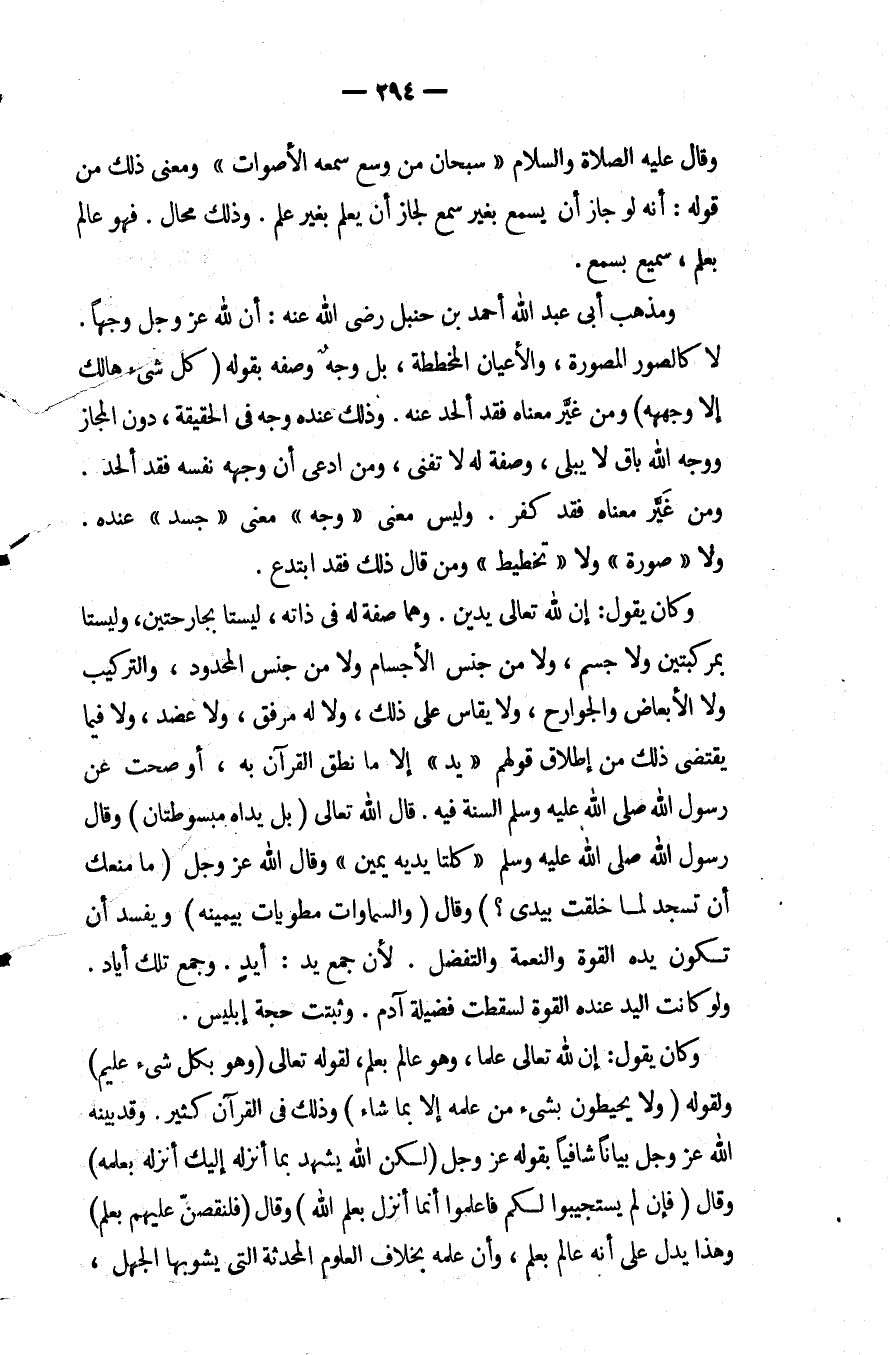 — ٢٩٤ —
وقال عليه الصلاة والسلام « سبحان من وسع سمعه الأصوات » ومعنى ذلك من
قوله : أنه لو جاز أن يسمع بغير سمع لجاز أن يعلم بغير علم . وذلك محال . فهو عالم
بعلم ، سميع بسمع .
ومذهب أبى عبد الله أحمد بن حنبل رضى الله عنه : أن لله عز وجل وجهاً .
لا كالصور المصورة ، والأعيان المخططة ، بل وجهٌ وصفه بقوله ( كل شىء هالك
إلا وجهه) ومن غيَّر معناه فقد ألحد عنه . وذلك عنده وجه فى الحقيقة ، دون المجاز
ووجه الله باق لا يبلى ، وصفة له لا تفنى ، ومن ادعى أن وجهه نفسه فقد ألحد .
ومن غَيَّر معناه فقد كفر . وليس معنى « وجه » معنى « جسد » عنده .
ولا « صورة » ولا « تخطيط » ومن قال ذلك فقد ابتدع .
وكان يقول: إن لله تعالى يدين . وهما صفة له فى ذاته ، ليستا بجارحتين، وليستا
بمركبتين ولا جسم ، ولا من جنس الأجسام ولا من جنس المحدود ، والتركيب
ولا الأبعاض والجوارح ، ولا يقاس على ذلك ، ولا له مرفق ، ولا عضد ، ولا فيما
يقتضى ذلك من إطلاق قولهم « يد » إلا ما نطق القرآن به ، أو صحت عن
رسول الله صلى الله عليه وسلم السنة فيه . قال الله تعالى ( بل يداه مبسوطتان ) وقال
رسول الله صلى الله عليه وسلم « كلتا يديه يمين » وقال الله عز وجل ( ما منعك
أن تسجد لمـا خلقت بيدى ؟ ) وقال ( والسماوات مطويات بيمينه ) ويفسد أن
تـكون يده القوة والنعمة والتفضل . لأن جمع يد : أيدٍ . وجمع تلك أياد .
ولو كانت اليد عنده القوة لسقطت فضيلة آدم . وثبتت حجة إبليس .
وكان يقول: إن لله تعالى علما ، وهو عالم بعلم، لقوله تعالى (وهو بكل شىء عليم)
ولقوله ( ولا يحيطون بشىء من علمه إلا بما شاء ) وذلك فى القرآن كثير . وقد بينه
الله عز وجل بياناً شافياً بقوله عز وجل (لـكن الله يشهد بما أنزله إليك أنزله بعلمه)
وقال ( فإن لم يستجيبوا لـكم فاعلموا أنما أنزل بعلم الله ) وقال (فلنقصنّ عليهم بعلم)
وهذا يدل على أنه عالم بعلم ، وأن علمه بخلاف العلوم المحدثة التى يشوبها الجهل ،